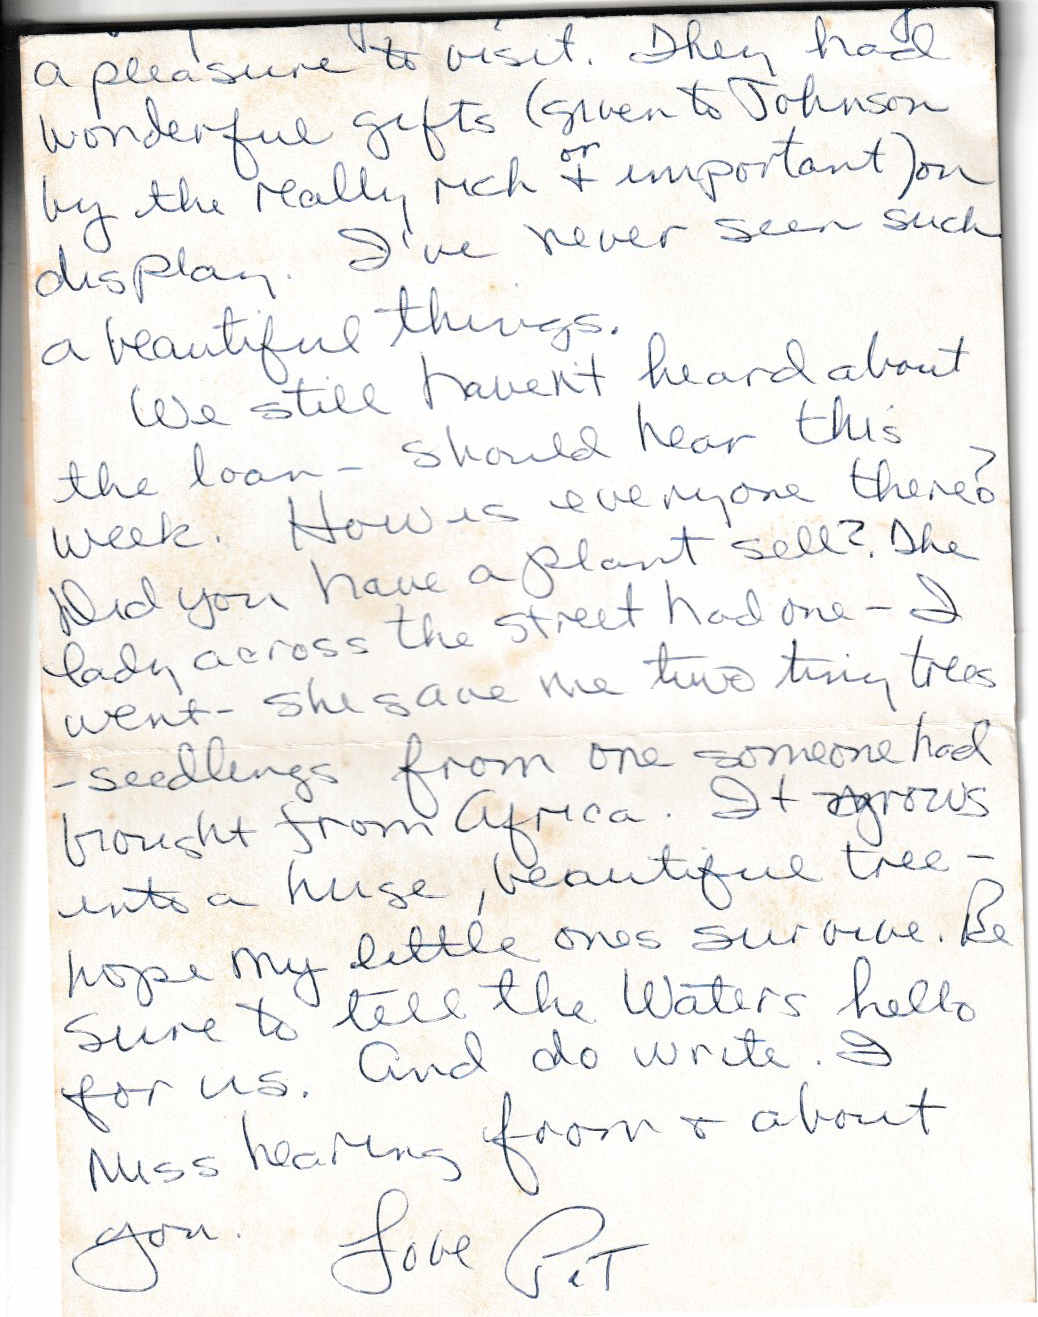 a pleasure to visit. They had
wonderful gifts (given to Johnson
by the really rich or + important) on
display. I've never seen such
a beautiful things.
We still haven't heard about
the loan - should hear this
week. How is everyone there?
Did you have a plant sell?. The
lady across the street had one - I
went - she gave me two tiny trees
- seedlings from one someone had
brought from Africa. It grows
into a huge, beautiful tree -
hope my little ones survive. Be
sure to tell the Waters hello
for us. And do write. I
Miss hearing from + about
you.
Love Pat